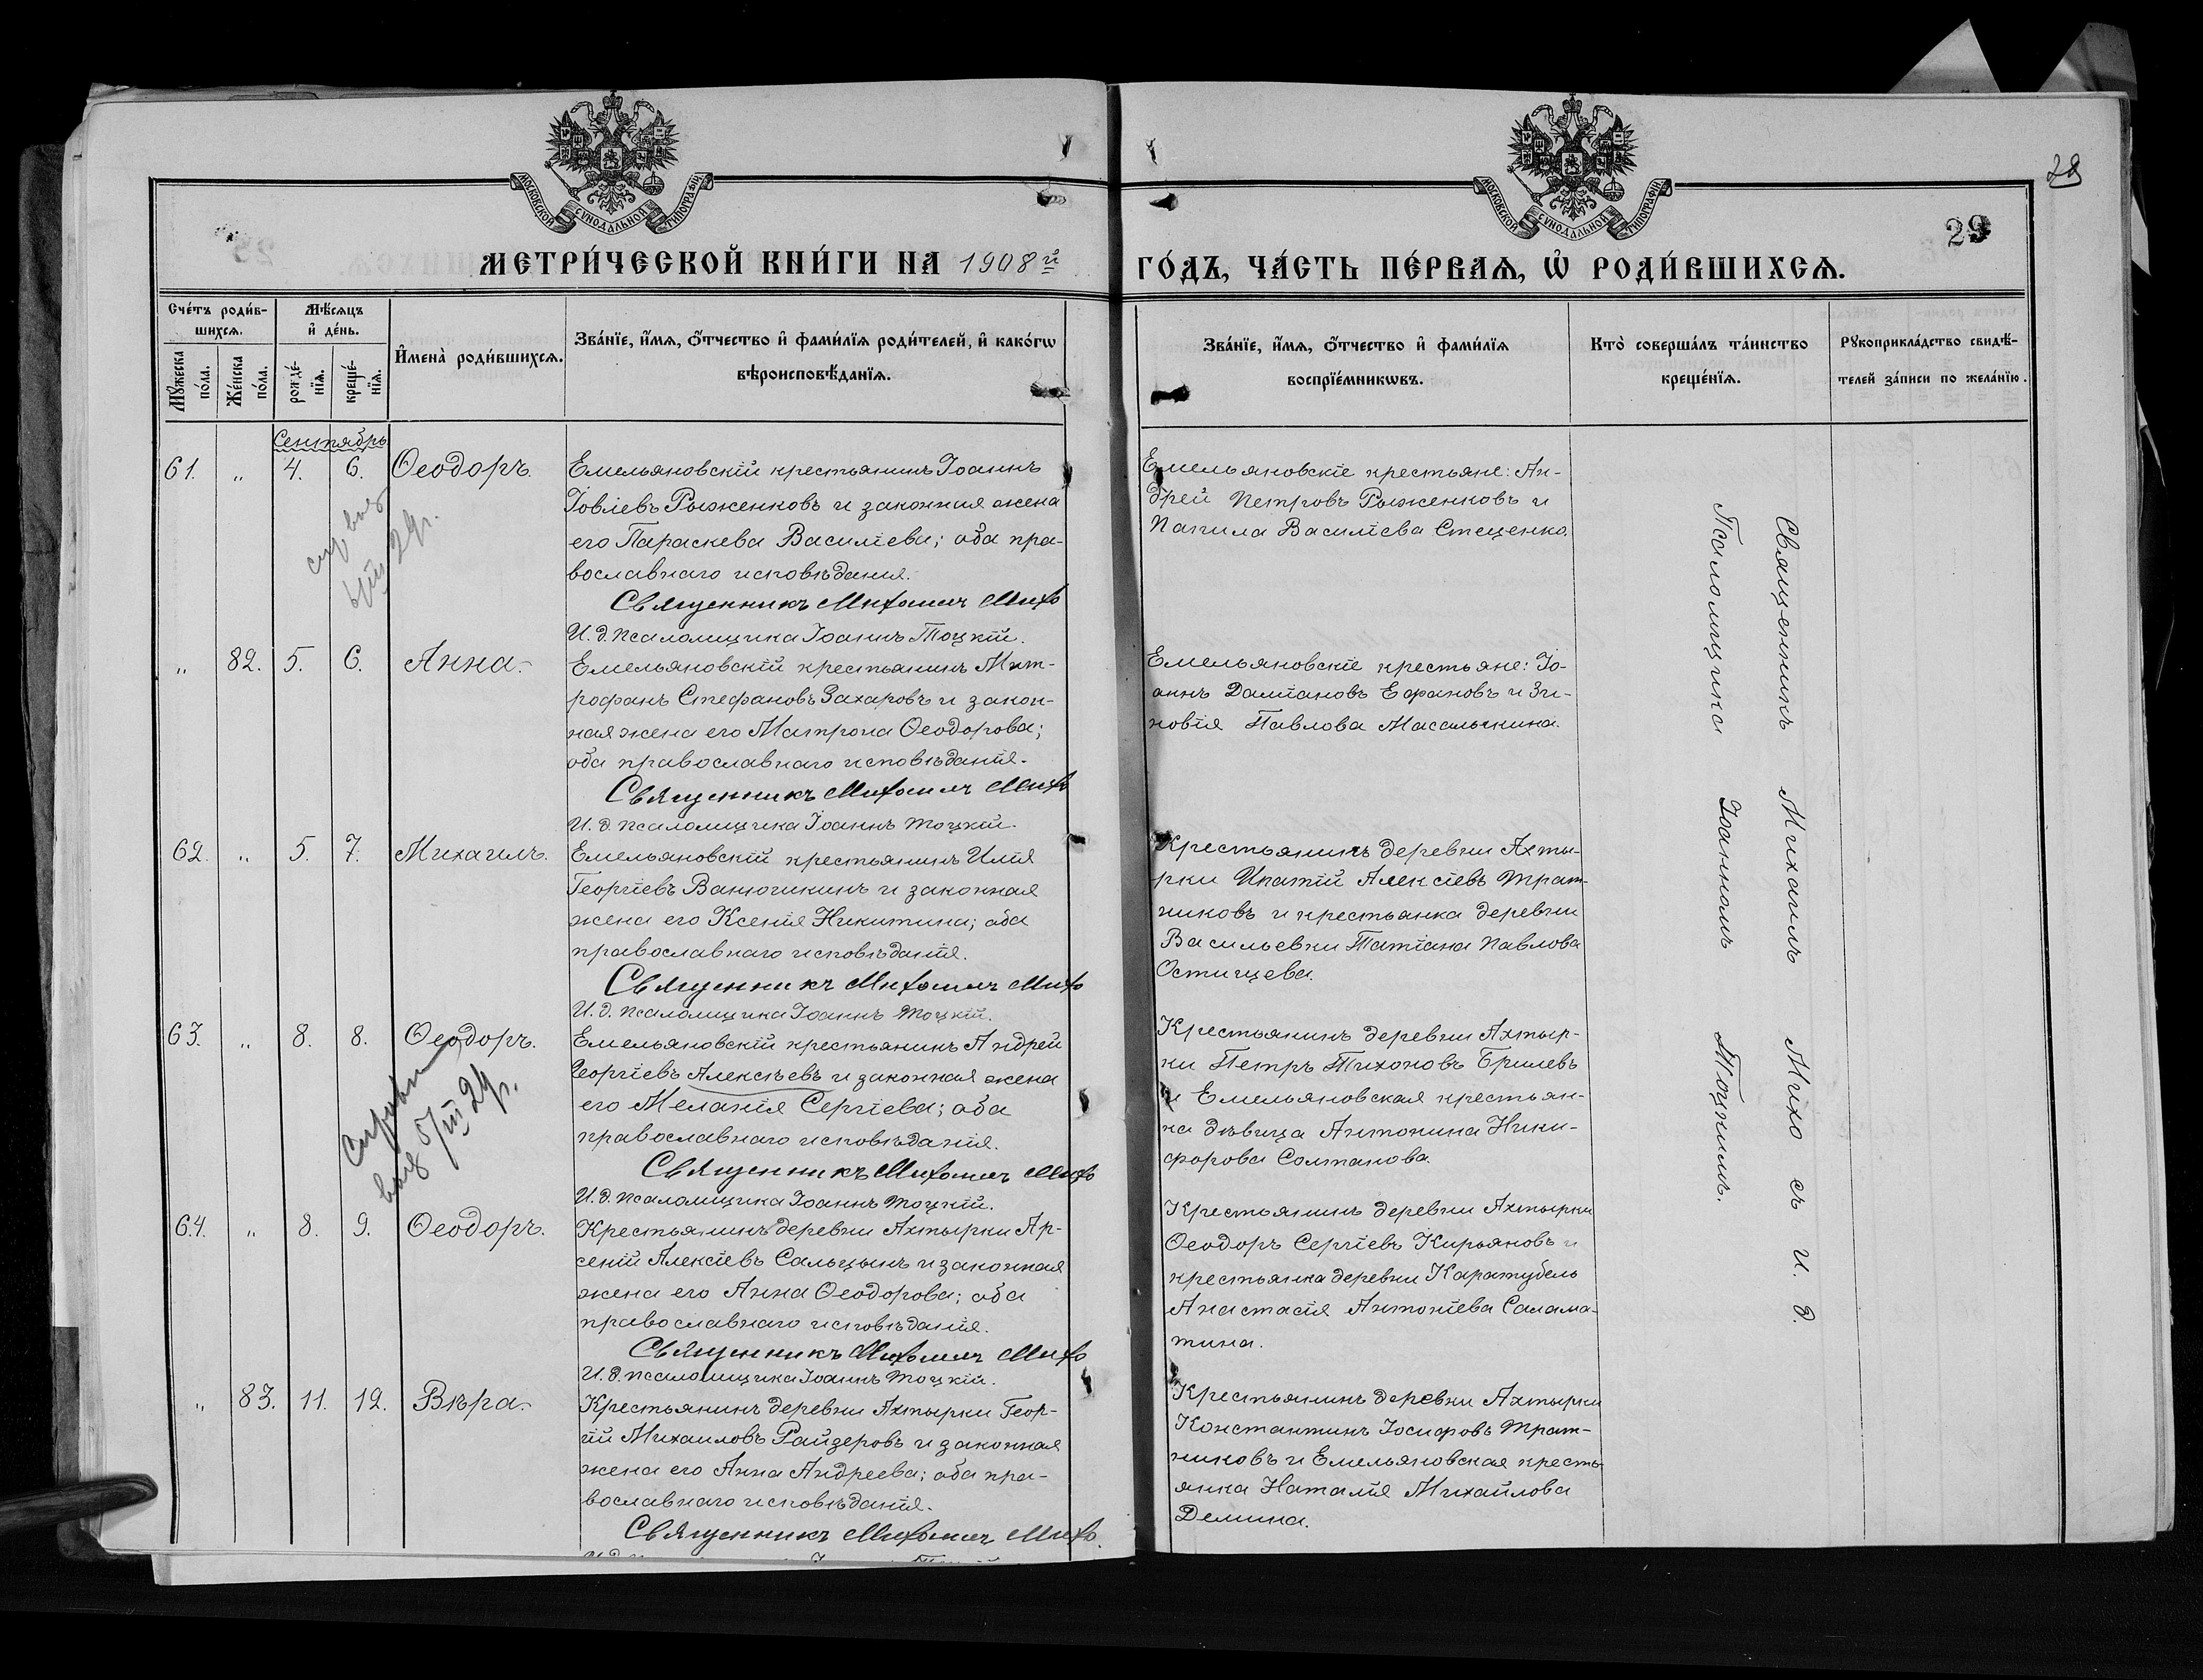 МОСКОВСКОЙ СУНОДАЛЬНОЙ ТИПОГРАФІИ
МОСКОВСКОЙ СУНОДАЛЬНОЙ ТИПОГРАФІИ
28
29
МЕТРИ́ЧЕСКОЙ КНИ́ГИ НА 1908й ГО́ДЪ, ЧА́СТЬ ПЕ́РВАѦ, Ѡ҆ РОДИ́ВШИХСѦ.
Сче́тъ роди́в-
шихсѧ.
Мꙋ́жеска по́ла.
Же́нска по́ла.
Мѣ́сѧцъ
и҆ де́нь.
рожде́-
нїѧ.
креще́-
нїѧ.
И҆мена̀ роди́вшихсѧ.
Зва́нїе, и҆́мѧ, ѻ҆́тчество и҆ фами́лїѧ роди́телей, и҆ како́гѡ
вѣроисповѣ́данїѧ.
Зва́нїе, и҆́мѧ, ѻ҆́тчество и҆ фами́лїѧ
воспрїе́мникѡвъ.
Кто̀ соверша́лъ та́инство
креще́нїѧ.
Рꙋкоприкла́дство свидѣ́-
телей за́писи по жела́нїю.
Сентябрь
61. „ 4. 6. Ѳеодоръ.
Емельяновскій крестьянинъ Іоаннъ
Іовлевъ Рыженковъ и законная жена
его Параскева Василіева; оба пра-
вославнаго исповѣданія.
Священникъ Михаилъ Михо
И. д. псаломщика Іоаннъ Тоцкій.
Емельяновскіе крестьяне: Ан-
дрей Петровъ Рыженковъ и
Василіева Стеценко.
„ 82. 5. 6. Анна.
Емельяновскій крестьянинъ Мит-
рофанъ Стефановъ Захаровъ и закон-
ная жена его Матрона Ѳеодорова;
оба православнаго исповѣданія.
Священникъ Михаилъ Михо
И. д. псаломщика Іоаннъ Тоцкій.
Емельяновскіе крестьяне: Іо-
аннъ Даміановъ Ефановъ и Зи-
новія Павлова Масалыкина.
62. „ 5. 7. Михаилъ.
Емельяновскій крестьянинъ Илія
Георгіевъ Ванючикинъ и законная
жена его Ксенія Никитина; оба
православнаго исповѣданія.
Священникъ Михаилъ Михо
И. д. псаломщика Іоаннъ Тоцкій.
Крестьянинъ деревни Ахты-
рки Ипатій Алексіевъ Трат-
никовъ и крестьянка деревни
Васильевки Татіана Павлова
Остищева.
63. „ 8. 8. Ѳеодоръ.
Емельяновскій крестьянинъ Андрей
Георгіевъ Алексѣевъ и законная жена
его Меланія Сергіева; оба
православнаго исповѣданія.
Священникъ Михаилъ Михо
И. д. псаломщика Іоаннъ Тоцкій.
Крестьянинъ деревни Ахтыр-
ки Петръ Тихоновъ Брилевъ
и Емельяновская крестьян-
ка дѣвица Антонина Ники-
форова Солтанова.
64. „ 8. 9. Ѳеодоръ.
Крестьянинъ деревни Ахтырки Ар-
сеній Алексіевъ Сальцынъ и законная
жена его Анна Ѳеодорова; оба
православнаго исповѣданія.
Священникъ Михаилъ Михо
И. д. псаломщика Іоаннъ Тоцкій.
Крестьянинъ деревни Ахтырки
Ѳеодоръ Сергіевъ Кирьяновъ и
крестьянка деревни Каратубель
Анастасія Антоніева Салама-
тина.
„ 83. 11. 12. Вѣра.
Крестьянинъ деревни Ахтырки Геор-
гій Михаиловъ Райзеровъ и законная
жена его Анна Андреева; оба пра-
вославнаго исповѣданія.
Священникъ Михаилъ Михо.
Крестьянинъ деревни Ахтырки
Константинъ Іосифовъ Трат-
никовъ и Емельяновская кресть-
янка Наталія Михайлова
Демина.
Священникъ Михаилъ Михо съ И. д.
Псаломщика Іоанномъ Тоцкимъ.